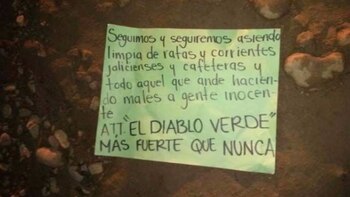 Seguimos y seguiremos asiendo
limpia de ratas y corrientes
jalicienses y cafeteras y
todo aquel que ande hacien-
do males a gente inocen-
te
ATT "EL DIABLO VERDE"
MAS FUERTE QUE NUNCA